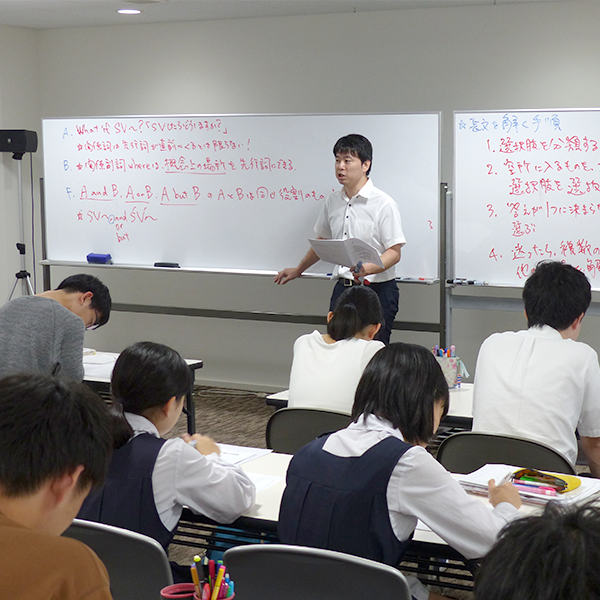 A. What if SV~?「SVしたらどうしますか?」
※関係詞は先行詞が直前へくるとは限らない!
B. ※関係副詞 where は、概念上の場所を先行詞にできる。
F. A and B, A or B, A but B の AとBは同じ役割のもの
※ SV~ and SV~
or
but
☆長文を解く手順
1. 選択肢を分類する
2. 空所に入るものを
選択肢を選
3. 答えが1つに決まら
選ぶ
4. 迷ったら、